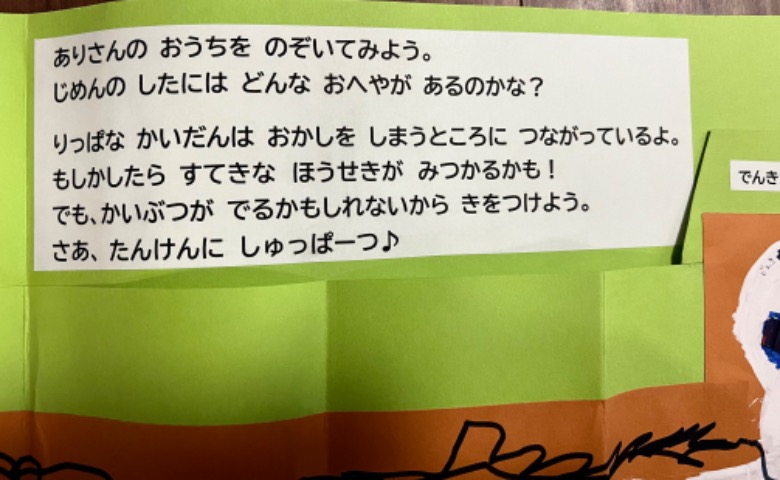 ありさんの おうちを のぞいてみよう。
じめんの したには どんな おへやが あるのかな？
りっぱな かいだんは おかしを しまうところに つながっているよ。
もしかしたら すてきな ほうせきが みつかるかも！
でも、かいぶつが でるかもしれないから きをつけよう。
さあ、たんけんに しゅっぱーつ♪
でんき